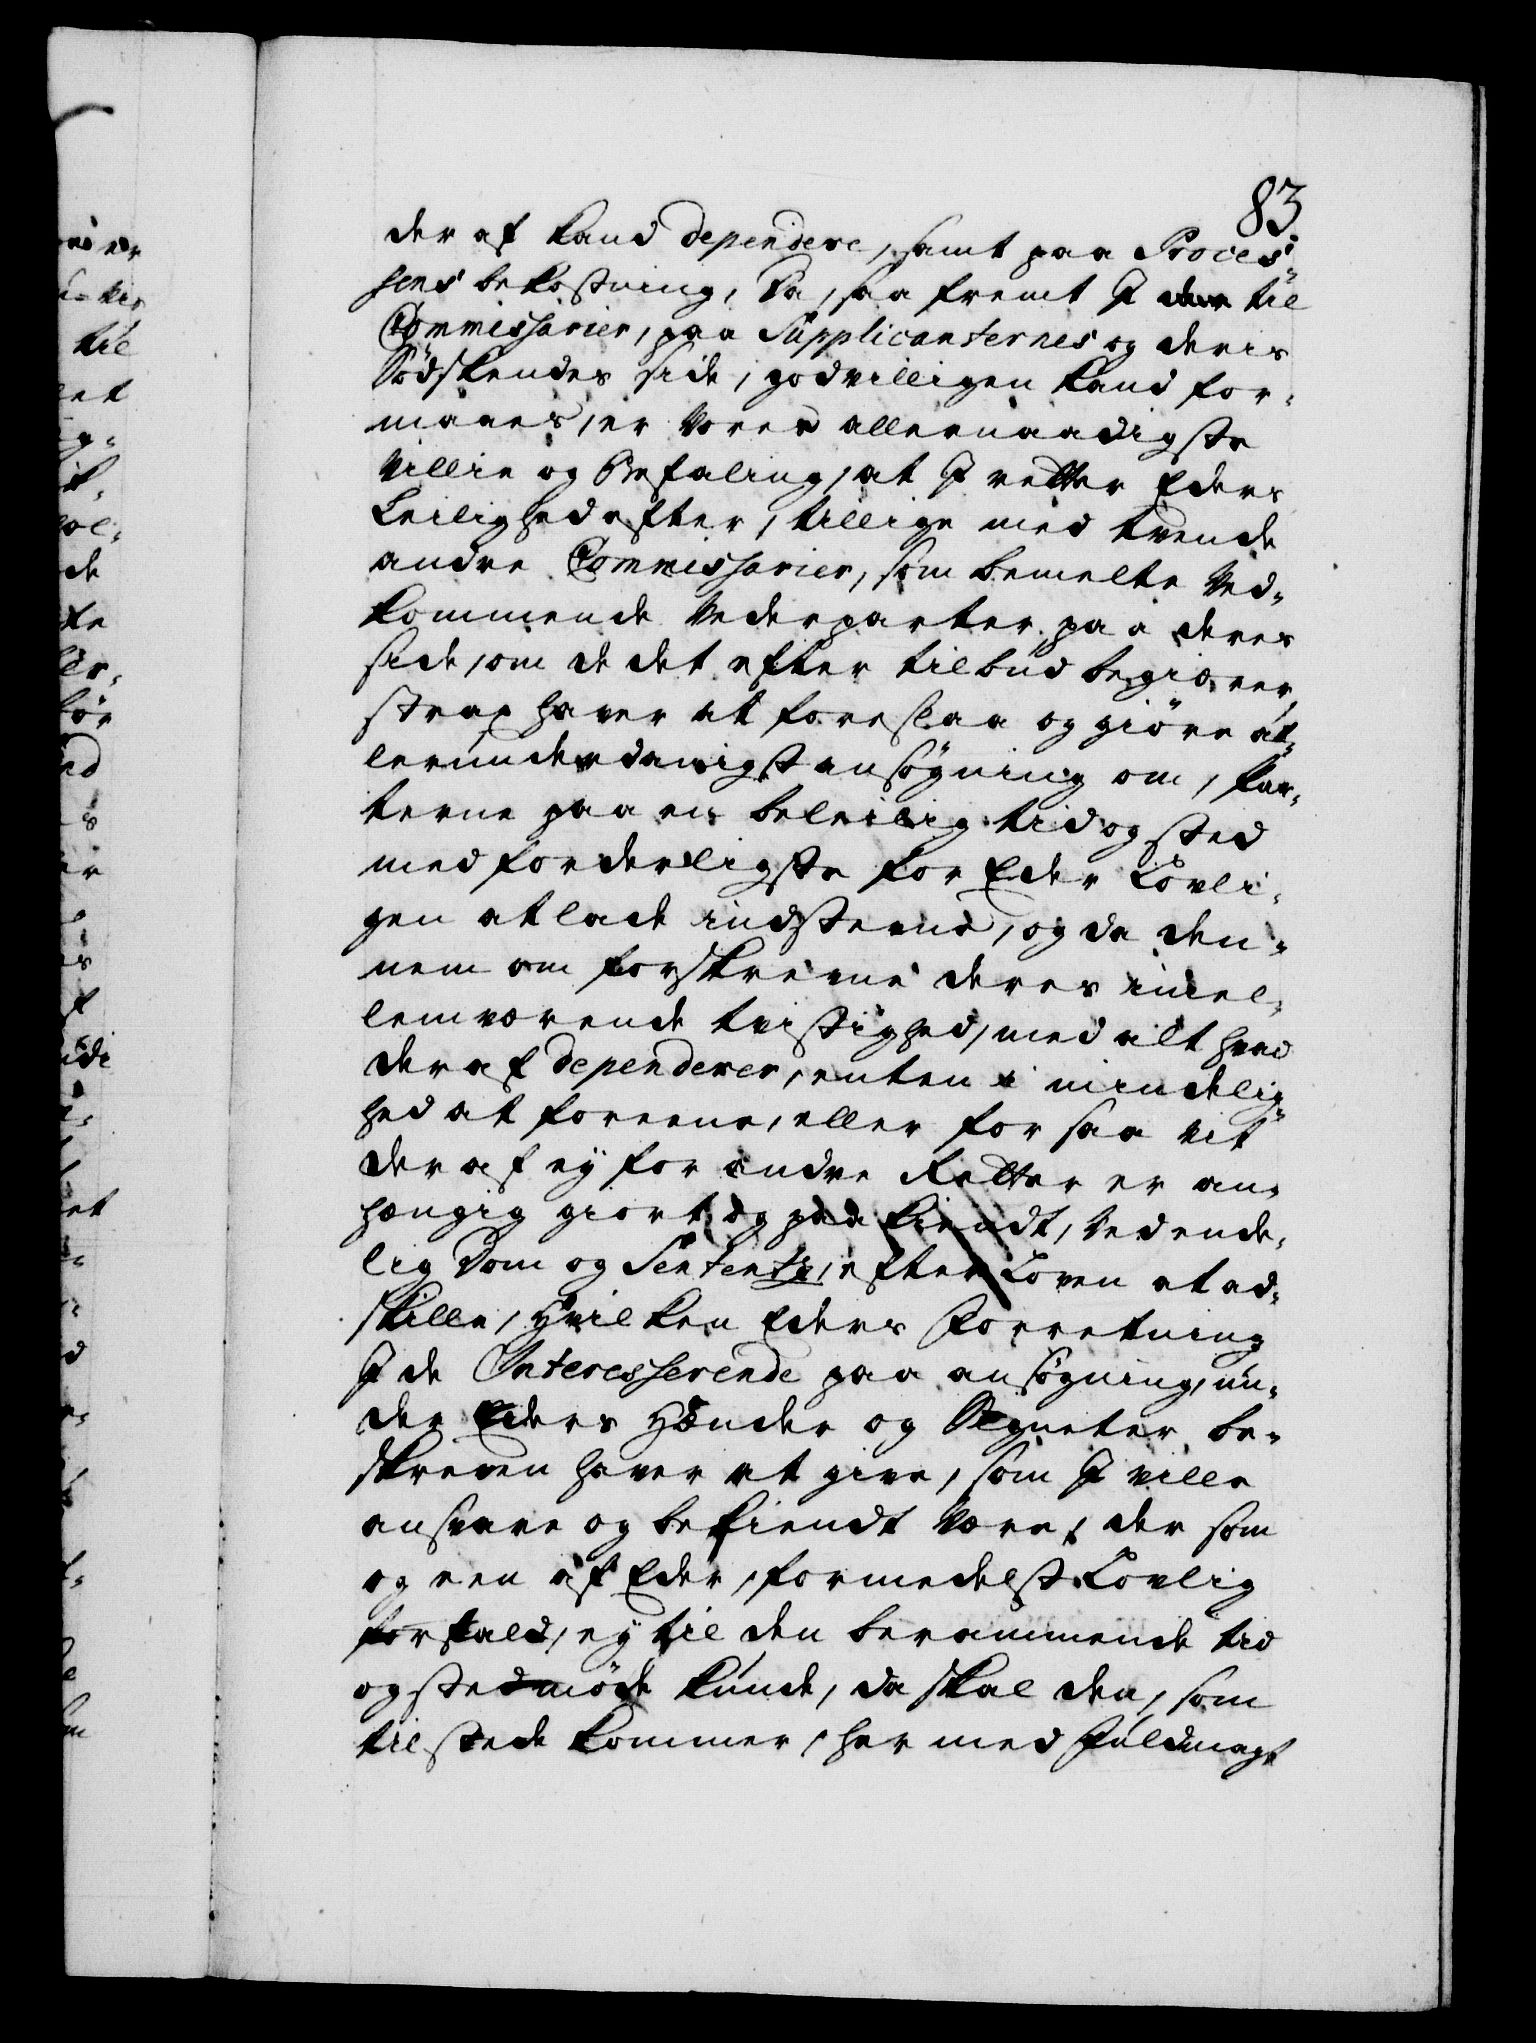 83
der af kand dependere, samt paa Proces¬
sens bekostning, Da, saa fremt I der til
Commissarier, paa Supplicanternes og deris
Södskendes side, godvilligen kand for¬
maaes, er Vores allernaadigste
Villie og Befaling, at I retter Eders
Leilighed efter, tillige med tvende
andre Commissarier, som bemelte Ved¬
kommende Vederparter paa deres
side, om de det efter tilbud begiærer,
strax haver at foreslaa og giöre al¬
lerunderdanigst ansøgning om, Par¬
terne paa en beleilig tid og sted
med forderligste for Eder Lovli¬
gen at lade indstevne, og da den¬
nem om forskrevne deres imel¬
lemværende tvistighed, med alt hvad
der af dependerer, enten i mindelig¬
hed at foreene, eller for saa vit
der af ey for andre Retter er an¬
hængig giort og paa kiendt, Ved ende¬
lig Dom og Sententz, efter Loven at ad¬
skille, Hvilken Eders Forretning
I de Interesserende paa ansøgning, un¬
der Eders Hænder og Signeter be¬
skreven haver at give, som I ville
ansvare og bekiendt Være, der som
og een af Eder, formedelst Lovlig
forfald, ey til den berammende tid
og sted møde kunde, da skal den, som
tilstede kommer, her med Fuldmagt